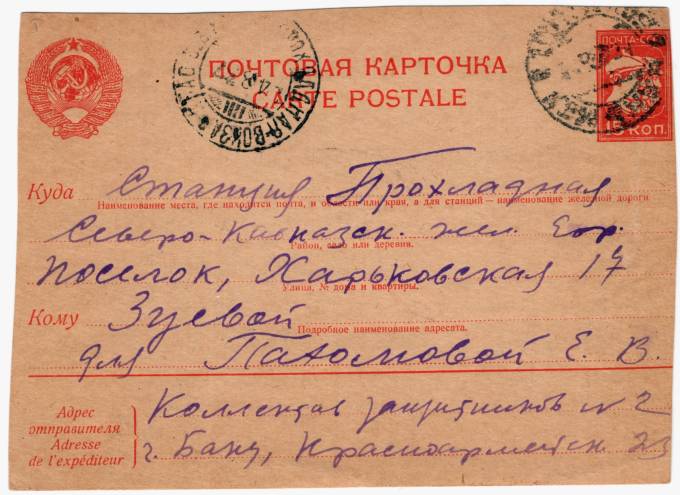 ПОЧТОВАЯ КАРТОЧКА
CARTE POSTALE
ПОЧТА-СССР
15 КОП.
Куда Станция Прохладная
Наименование места, где находится почта, и области или края, а для станций — наименование железной дороги
Северо-Кавказск. жел. дор.
Район, село или деревня.
поселок, Харьковская 17
Улица, № дома и квартиры.
Кому Зуевой
Подробное наименование адресата.
для Пахомовой Е. В.
Адрес отправителя
Adresse de l'expéditeur
Коллектив защитников № 2
г. Баку, Красноармейск. 23